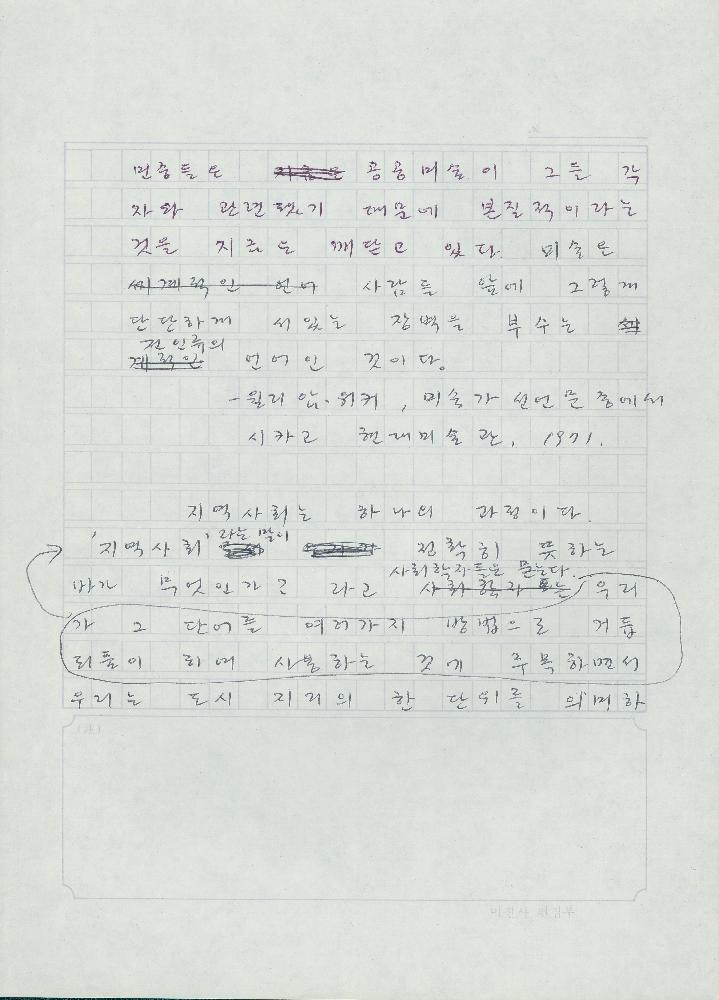 민중들은 지금은 공공미술이 그들 각
자와 관련됐기 때문에 본질적이라는
것을 지금은 깨닫고 있다. 미술은
세계적인 언어 사람들 앞에 그렇게
단단하게 서있는 장벽을 부수는
전인류의
계적인 언어인 것이다.
-윌리암·워커, 미술가 선언문 중에서
시카고 현대미술관, 1971.
지역사회는 하나의 과정이다.
라는 말이
'지역사회' 정확히 뜻하는
사회학자들은 묻는다.
바가 무엇인가? 라고 사회학자들은 우리
가 그 단어를 여러가지 방법으로 거듭
되풀이 하여 사용하는 것에 주목하면서
우리는 도시 지리의 한 단위를 의미하
(24)
미진사 편집부